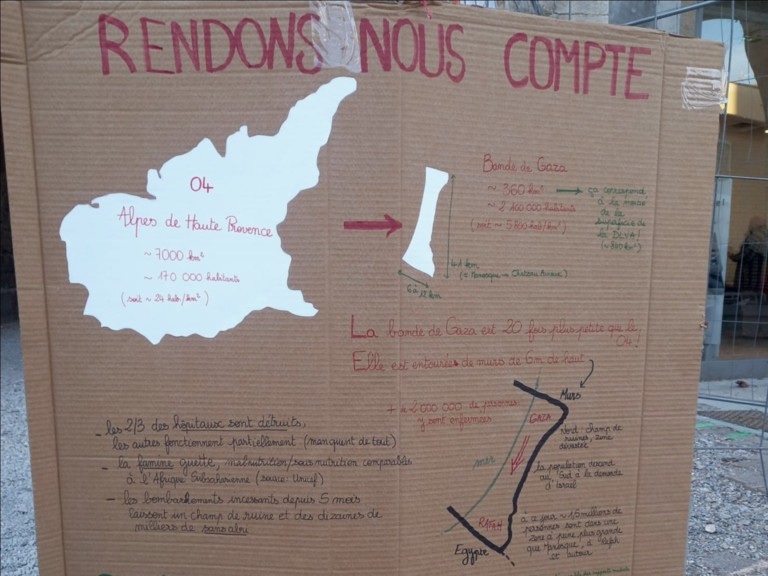 RENDONS NOUS COMPTE
04
Alpes de Haute Provence
~ 7000 km²
~ 170 000 habitants
(soit ~ 24 hab/km²)
Bande de Gaza
~ 360 km²
~ 2 100 000 habitants
(soit ~ 5800 hab/km²)
ça correspond
à la moitié
de la
superficie de
la DLVA!
km
(= Manosque → Château Arnoux)
6 à 12 km
La bande de Gaza est 20 fois plus petite que le
04!
Elle est entourée de murs de 6m de haut
+ de 2 000 000 de personnes
y sont enfermées
Murs
GAZA
mer
Nord: champ de
ruines, zone
dévastée
la population descend
au Sud à la demande
d'Israël
RAFAH
Egypte
à ce jour ~ 1.5 milliers de
personnes sont dans une
zone à peine plus grande
que Manosque, à Rafah
et autour
- les 2/3 des hôpitaux sont détruits,
les autres fonctionnent partiellement (manquent de tout)
- la famine guette, malnutrition/sous nutrition comparables
à l'Afrique Subsaharienne (source: Unicef)
- les bombardements incessants depuis 5 mois
laissent un champ de ruine et des dizaines de
milliers de sans abri